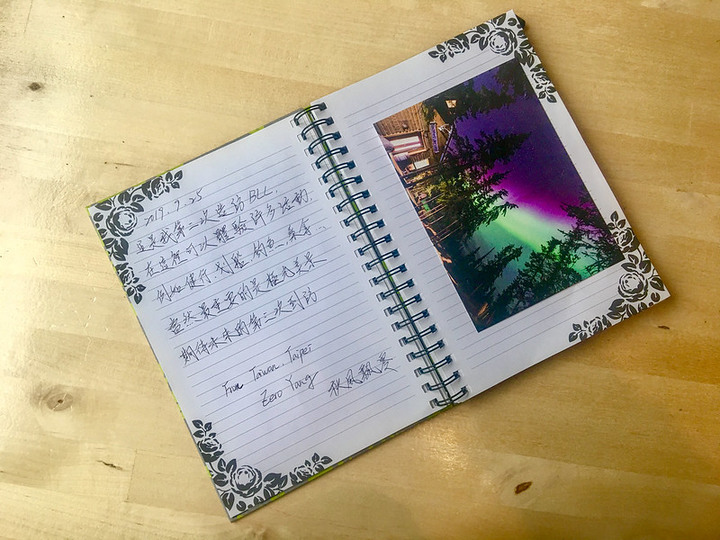 2019.9.25
這是我第二次造訪 BLL.
在這裡可以體驗許多活動.
例如健行.划船.釣魚...
當然最重要的是極光美景
期待未來的第三次到訪
From Taiwan. Taipei
Zero Yang 秋風飄